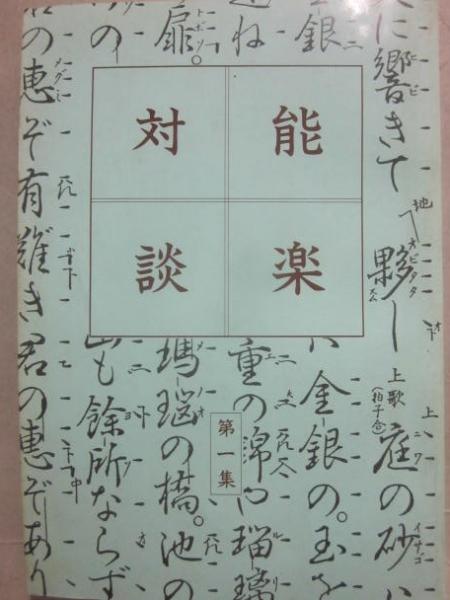 能楽
対談
第一集
に響きて
地
夥し
上歌
(拍子合)
庭の砂は
金銀
金銀の。玉を
重の錦や瑠璃
扉。
瑪瑙の橋。池の
の
山も餘所ならず
の恵ぞ有難き君の恵ぞあり